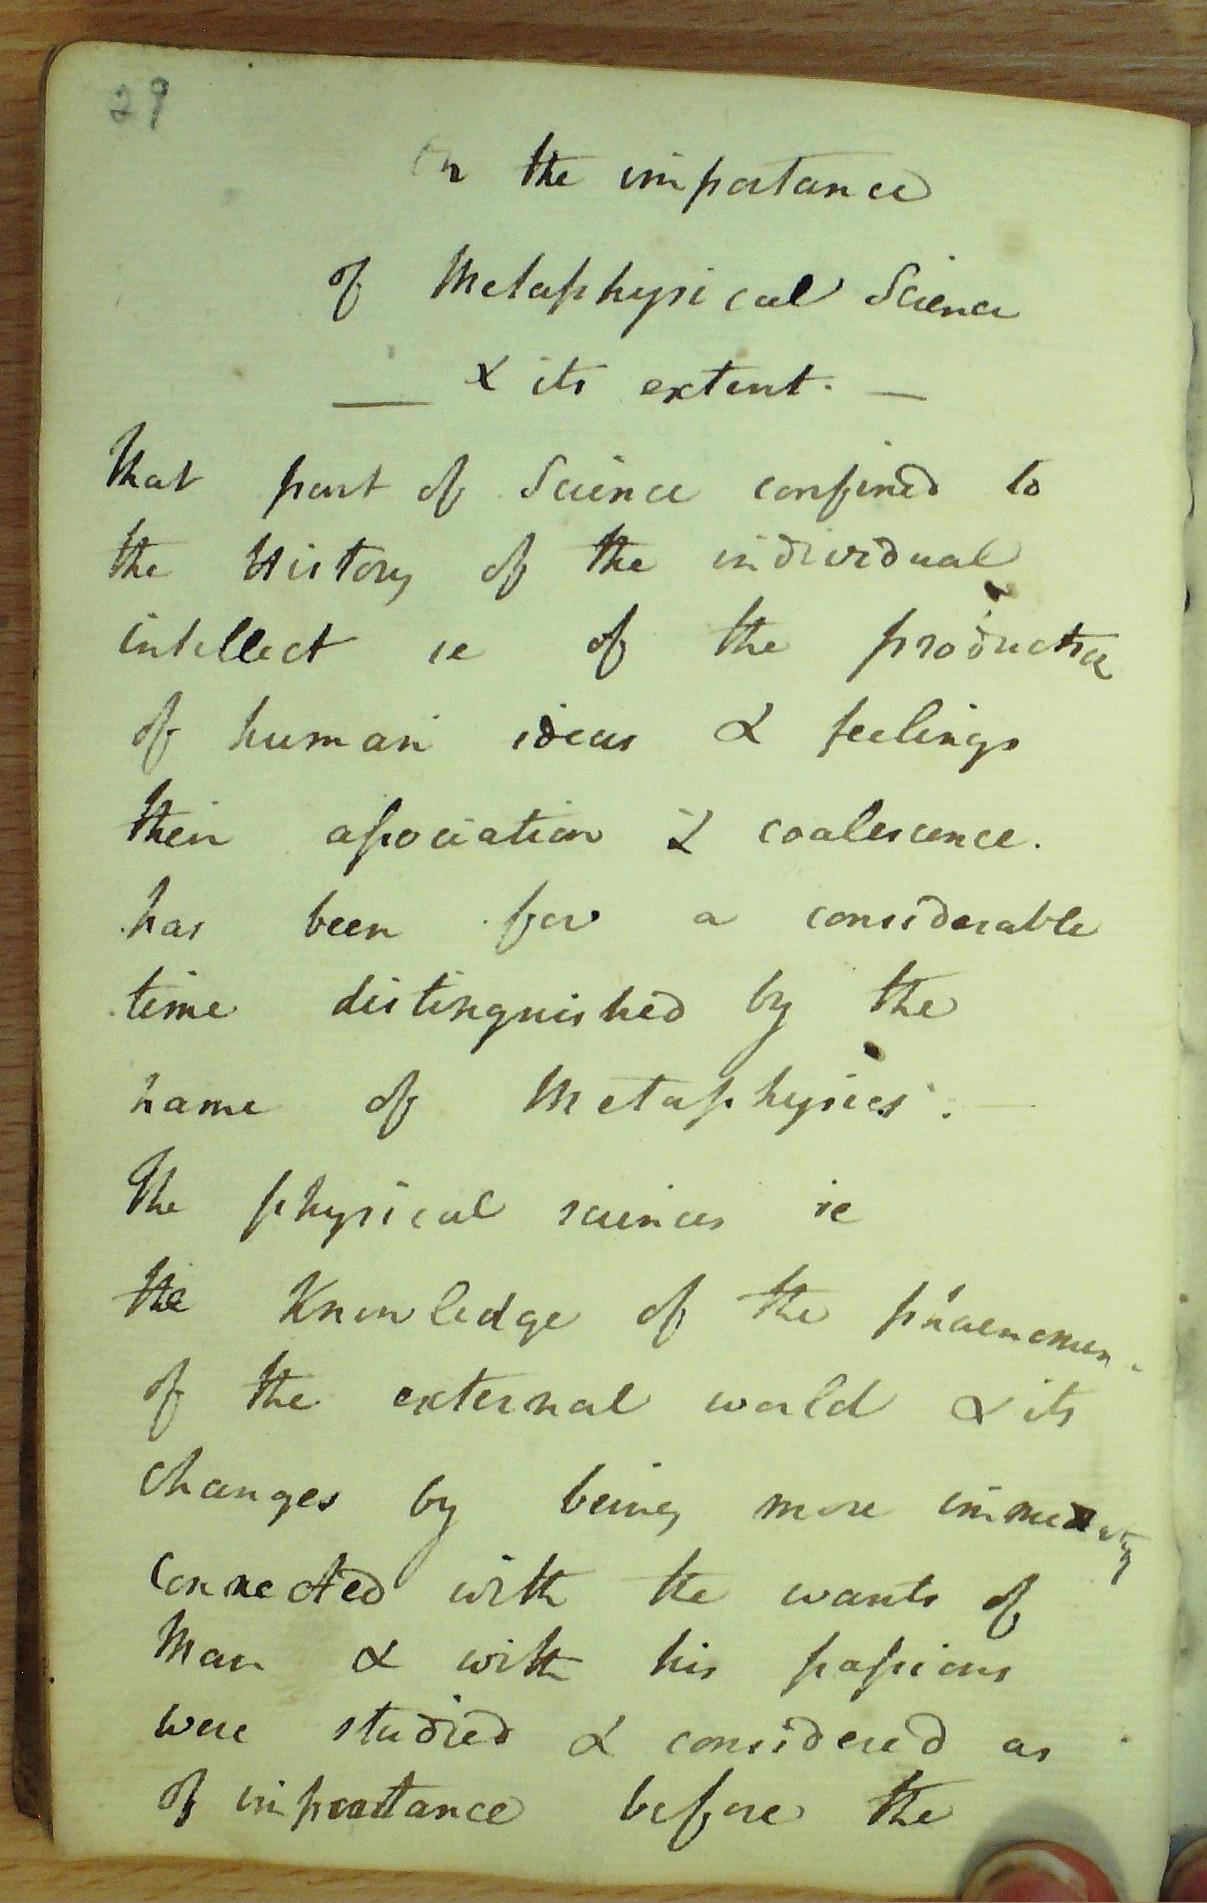 29
On the importance
of Metaphysical Science
& its extent. —
That part of Science confined to
the History of the individual
intellect ie of the production
of human ideas & feelings
their association & coalescence.
has been for a considerable
time distinguished by the
name of Metaphysics. —
The physical sciences ie
the Knowledge of the phaenomena
of the external world & its
changes by being more immediately
connected with the wants of
Man & with his passions
were studied & considered as
of importance before the